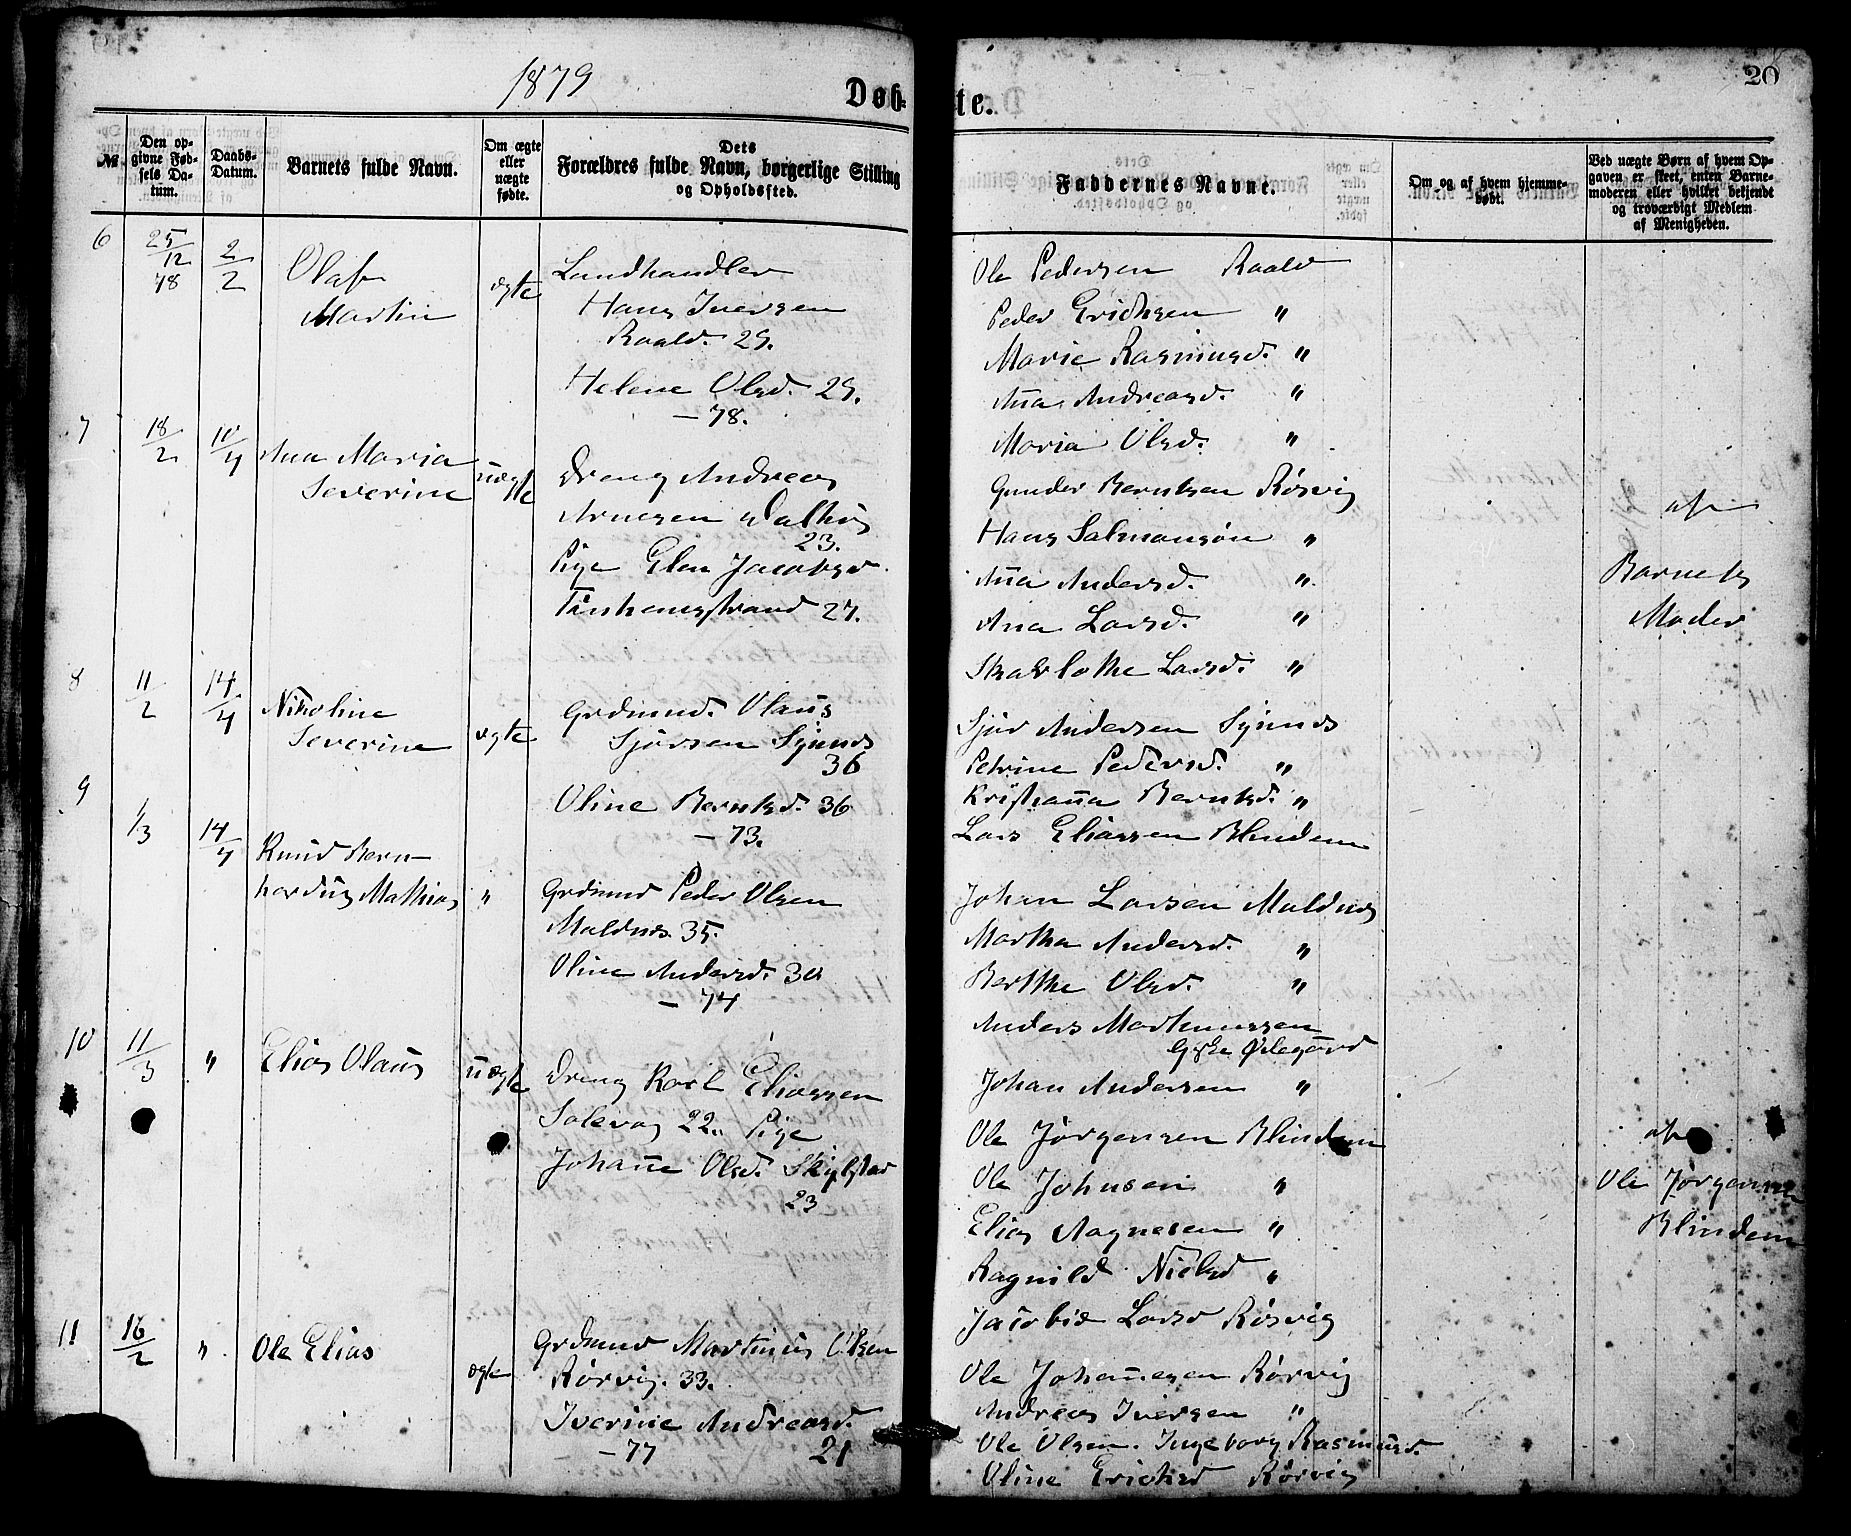 1879
Døb-
№
Den op-
givne Fød-
sels Da-
tum.
Daabs-
Datum.
Barnets fulde Navn.
Om ægte
eller
uægte
fødte.
Dets
Forældres fulde Navn, borgerlige Stilling
og Opholdssted.
6
25/12 78
2/2
Olaf
Martin
ægte
Landhandler
Hans Iversen
Roald. 29.
Helene Olsd. 29.
— 78.
7
18/2
10/4
Ana Maria
Severine
uægte
Dreng Andreas
Arnesen
23.
Pige Elen Jacobsd.
27.
8
11/2
14/4
Nikoline
Severine
ægte
Grdmnd. Olaus
Sjursen Synnes
36
Oline Berntsd. 36
— 73.
9
1/3
14/4
Knud Bern-
hardus Mathias
"
Grdmnd Peder Olsen
Maldnes. 35.
Oline Andersd. 30
— 74
10
11/3
"
Elias Olaus
uægte
Dreng Karl Eliassen
Solevåg 22. Pige
Johanne Olsd. Skylstad
23
11
16/2
"
Ole Elias
ægte
Grdmnd Martinus Olsen
Rørvig. 33.
Iverine Andreasd.
— 77 21
te.
20
Faddernes Navne.
Om og af hvem hjemme-
døbt.
Ved uægte Børn af hvem Op-
gaven er skeet, enten Barne-
moderen eller hvilket bekjendt
og troværdigt Medlem
af Menigheden.
Ole Pedersen Roald
Peder Erichsen "
Marie Rasmusd. "
Ana Andreasd. "
Maria Olsd. "
Gunder Berntsen Rørvig
Hans Salmonsøn "
Ana Andersd. "
Ana Larsd. "
Skarlothe Larsd. "
af
Barnets
Moder
Sjur Andersen Synnes
Petrine Pedersd. "
Kristianna Berntsd. "
Lars Eliassen Blindem
Johan Larsen Maldnes
Martha Andersd. "
Berthe Olsd. "
Anders Martinussen
Giske Ødegård
Johan Andersen "
Ole Jørgensen Blindem
Ole Johnsen "
Elias Aagnesen "
Ragnild Nielsd "
Jacobie Larsd Rørvig
af
Ole Jørgensen
Blindem
Ole Johannesen Rørvig
Andreas Iversen "
Ole Olsen. Ingeborg Rasmusd.
Oline Erichsd Rørvig